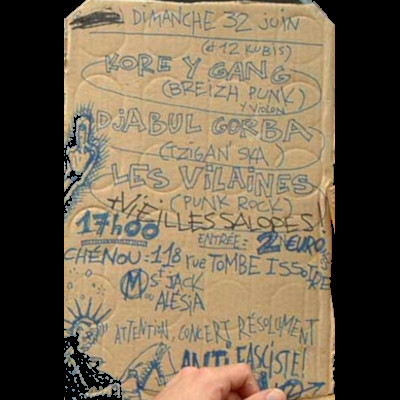 DIMANCHE 32 JUIN
(à 12 KUBIS)
KORE Y GANG
(BREIZH PUNK)
Y VIOLON
DJABUL GORBA
(TZIGAN' SKA)
LES VILAINES
(PUNK ROCK)
+VIEILLES SALOPES!
17h00 ENTRÉE: 2 EURO
CHÉNOU: 118 rue TOMBE ISSOIRE
M St JACK
ou ALÉSIA
ATTENTION, CONCERT RÉSOLUMENT
ANTIFASCISTE!